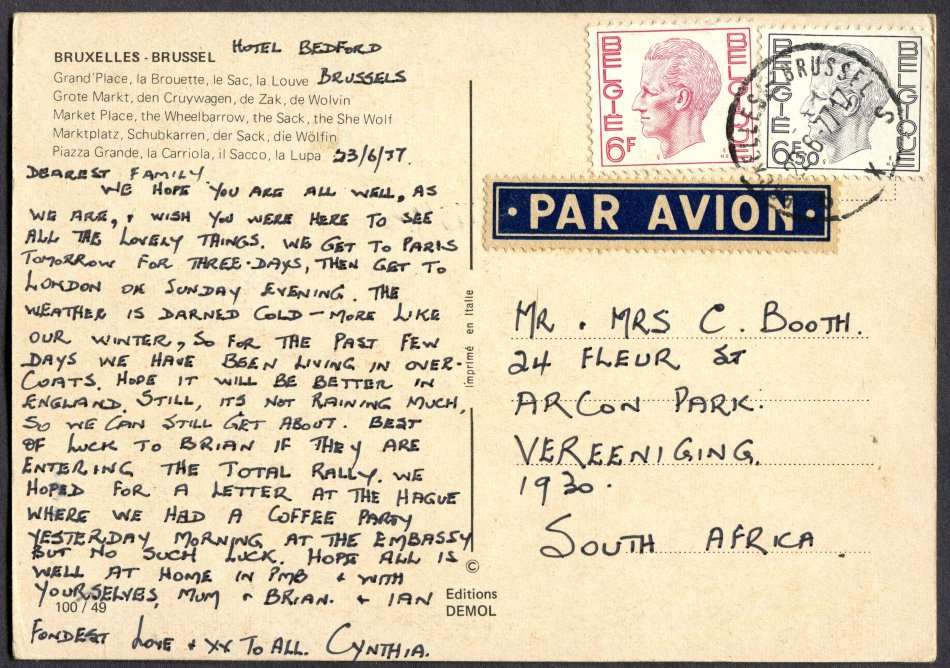 HOTEL BEDFORD
BRUXELLES - BRUSSEL
BRUSSELS
Grand'Place, la Brouette, le Sac, la Louve
Grote Markt, den Cruywagen, de Zak, de Wolvin
Market Place, the Wheelbarrow, the Sack, the She Wolf
Marktplatz, Schubkarren, der Sack, die Wölfin
Piazza Grande, la Carriola, il Sacco, la Lupa
23/6/77.
DEAREST FAMILY
WE HOPE YOU ARE ALL WELL, AS
WE ARE, & WISH YOU WERE HERE TO SEE
ALL THE LOVELY THINGS. WE GET TO PARIS
TOMORROW FOR THREE-DAYS, THEN GET TO
LONDON ON SUNDAY EVENING. THE
WEATHER IS DARNED COLD - MORE LIKE
OUR WINTER, SO FOR THE PAST FEW
DAYS WE HAVE BEEN LIVING IN OVER-
COATS. HOPE IT WILL BE BETTER IN
ENGLAND. STILL, ITS NOT RAINING MUCH,
SO WE CAN STILL GET ABOUT. BEST
OF LUCK TO BRIAN IF THEY ARE
ENTERING THE TOTAL RALLY. WE
HOPED FOR A LETTER AT THE HAGUE
WHERE WE HAD A COFFEE PARTY
YESTERDAY MORNING AT THE EMBASSY
BUT NO SUCH LUCK. HOPE ALL IS
WELL AT HOME IN PMB & WITH
YOURSELVES, MUM & BRIAN. & IAN
100 / 49
FONDEST LOVE & XX TO ALL. CYNTHIA.
Imprimé en Italie
©
Editions
DEMOL
BELGIE
BELGIQUE
6F
BELGIE
BELGIQUE
6F50
BRUSSEL
PAR AVION
MR & MRS C. BOOTH.
24 FLEUR ST
ARCON PARK.
VEREENIGING.
1930.
SOUTH AFRICA.